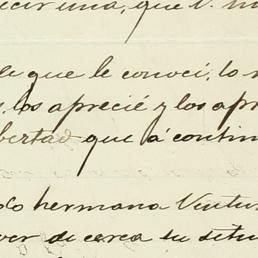 cir una, que V. m
de que le conocí, lo
los aprecié y los apr
bertad que á contin
hermana Ventur
ver de cerca tu situ